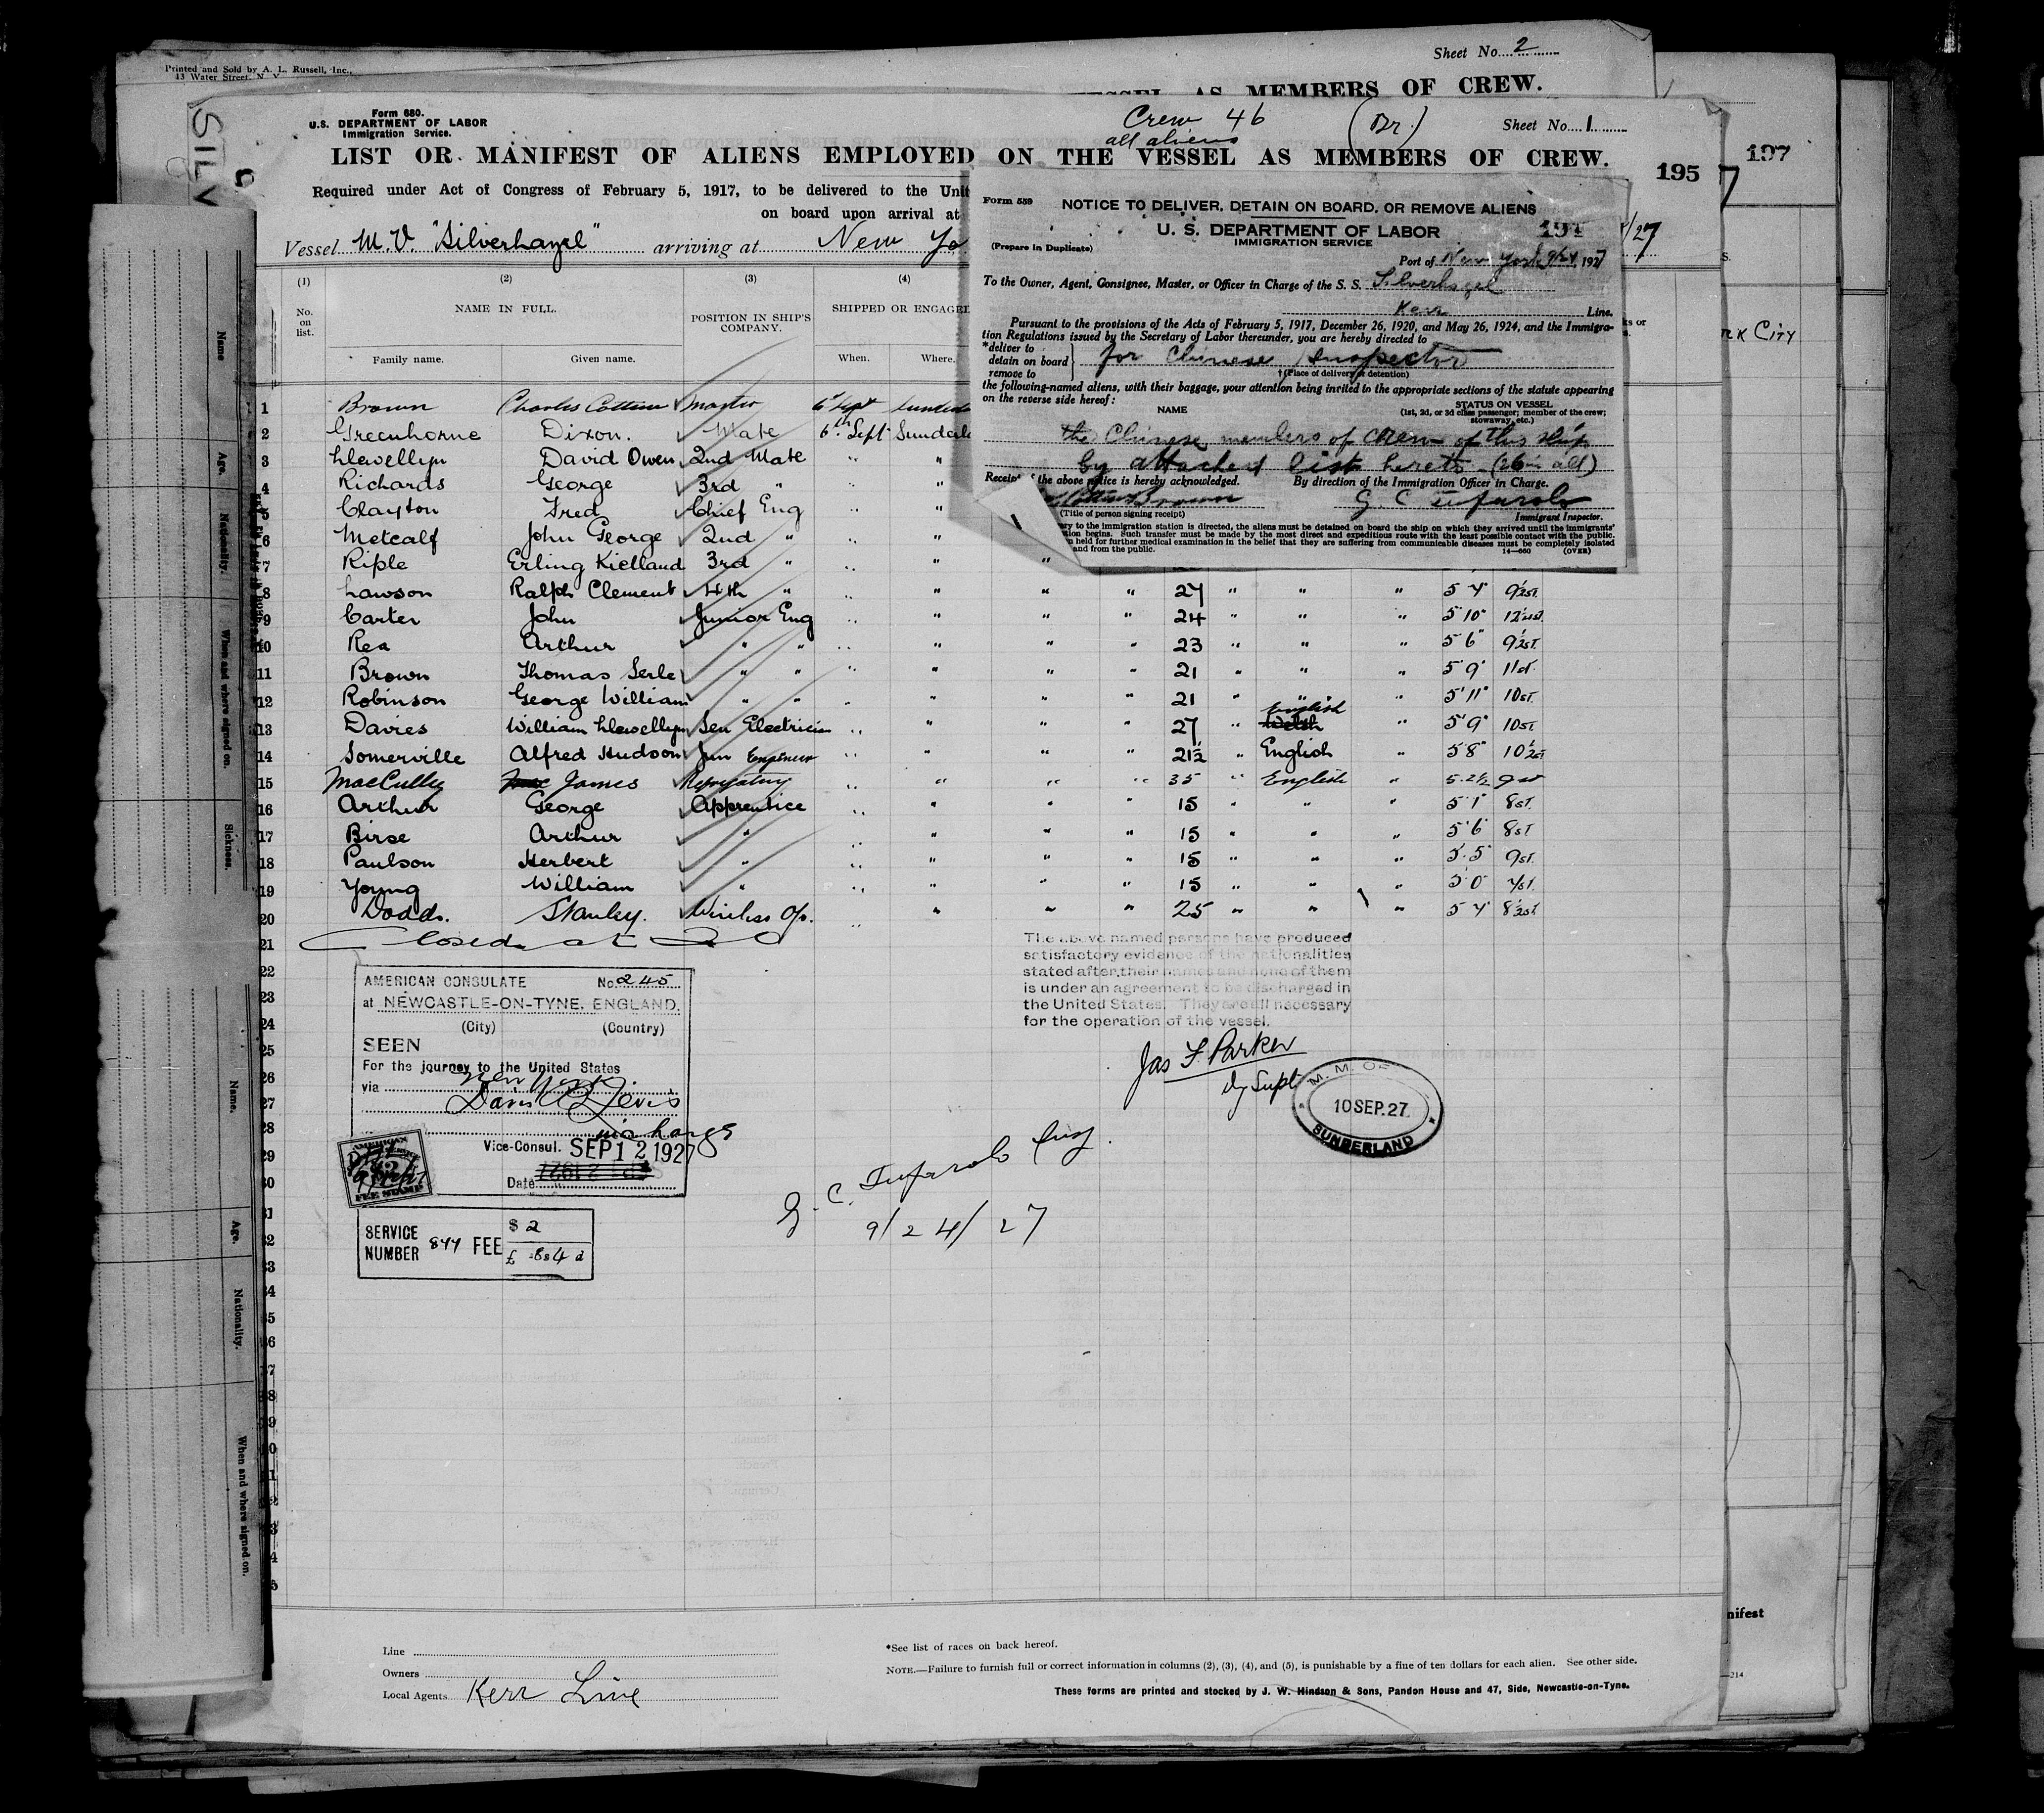 Printed and Sold by A. L. Russell, Inc.,
13 Water Street, N. Y.
Sheet No. 2
AS MEMBERS OF CREW.
Form 680.
U.S. DEPARTMENT OF LABOR
Immigration Service.
Crew 46
all aliens
(Br)
Sheet No. 1
LIST OR MANIFEST OF ALIENS EMPLOYED ON THE VESSEL AS MEMBERS OF CREW.
195
197
Required under Act of Congress of February 5, 1917, to be delivered to the Unit
on board upon arrival at
Vessel M.V. "Silverhazel" arriving at New Yo
/27
(1) (2) (3) (4)
No. on list.
NAME IN FULL.
POSITION IN SHIP'S COMPANY.
SHIPPED OR ENGAGE
Family name. Given name. When. Where.
RK CITY
Form 559
NOTICE TO DELIVER, DETAIN ON BOARD, OR REMOVE ALIENS
U. S. DEPARTMENT OF LABOR
IMMIGRATION SERVICE
194
(Prepare in Duplicate)
Port of New York 9/24, 1927
To the Owner, Agent, Consignee, Master, or Officer in Charge of the S. S. Silverhazel
Kerr Line.
Pursuant to the provisions of the Acts of February 5, 1917, December 26, 1920, and May 26, 1924, and the Immigra-
tion Regulations issued by the Secretary of Labor thereunder, you are hereby directed to
*deliver to
detain on board
remove to
for Chinese Inspector
†(Place of delivery or detention)
the following-named aliens, with their baggage, your attention being invited to the appropriate sections of the statute appearing
on the reverse side hereof:
NAME
STATUS ON VESSEL
(1st, 2d, or 3d class passenger; member of the crew;
stowaway, etc.)
the Chinese members of crew of this ship
by attached list hereto (26 in all)
Receipt of the above notice is hereby acknowledged. By direction of the Immigration Officer in Charge.
Cottew Brown G. C. Tufarolo
(Title of person signing receipt) Immigrant Inspector.
ary to the immigration station is directed, the aliens must be detained on board the ship on which they arrived until the immigrants'
tion begins. Such transfer must be made by the most direct and expeditious route with the least possible contact with the public.
n held for further medical examination in the belief that they are suffering from communicable diseases must be completely isolated
and from the public.
14—660 (OVER)
1 Brown Charles Cottew Master 6 Sept Sunderla
2 Greenhorne Dixon. Mate 6th Sept Sunderla
3 Llewellyn David Owen 2nd Mate " "
4 Richards George 3rd " " "
5 Clayton Fred Chief Eng " "
6 Metcalf John George 2nd " " "
7 Riple Erling Kielland 3rd " " " "
8 Lawson Ralph Clement 4th " " " " " 27 " " " 5 4" 9½st.
9 Carter John Junior Eng " " " " 24 " " " 5'10" 12½st.
10 Rea Arthur " " " " " " 23 " " " 5'6" 9½st.
11 Brown Thomas Serle " " " " " " 21 " " " 5'9" 11st.
12 Robinson George William " " " " " " 21 " " " 5'11" 10st.
English
13 Davies William Llewellyn Sen Electrician " " " " 27 " Welsh " 5'9" 10st.
14 Somerville Alfred Hudson Jun Engineer " " " " 21½ " English " 5'8" 10½st
15 MacCulley James Refrigerating " " " " 35 " English " 5.2½ 9st
16 Arthur George Apprentice " " " " 15 " " " 5'1" 8st.
17 Birse Arthur " " " " " 15 " " " 5'6" 8st
18 Paulson Herbert " " " " " 15 " " " 5'5" 9st.
19 Young William " " " " " 15 " " " 5'0" 7st.
20 Dodds. Stanley. Wireless Op. " " " " 25 " " " 5 4" 8½st.
21 Closed at 20
22
23
24
25
26
27
28
29
30
31
32
33
34
35
36
37
38
39
AMERICAN CONSULATE No. 245
at NEWCASTLE-ON-TYNE, ENGLAND.
(City) (Country)
SEEN
For the journey to the United States
via New York
Vice-Consul. SEP 12 1927
Date
AMERICAN
FEE STAMP
SERVICE NUMBER 844 FEE $ 2
£ 8s 4d
The above named persons have produced
satisfactory evidence of the nationalities
stated after their names and none of them
is under an agreement to be discharged in
the United States. They are all necessary
for the operation of the vessel.
Jas F. Parker
Dy Supt
M. M. O.
10 SEP. 27.
SUNDERLAND
G. C. Tufarolo Insp.
9/24/27
Name
Age.
Nationality.
When and where signed on.
Sickness.
Name.
Age.
Nationality.
When and where signed on.
Line
Owners
Local Agents Kerr Line
*See list of races on back hereof.
NOTE.—Failure to furnish full or correct information in columns (2), (3), (4), and (5), is punishable by a fine of ten dollars for each alien. See other side.
These forms are printed and stocked by J. W. Hindson & Sons, Pandon House and 47, Side, Newcastle-on-Tyne.
nifest
—214